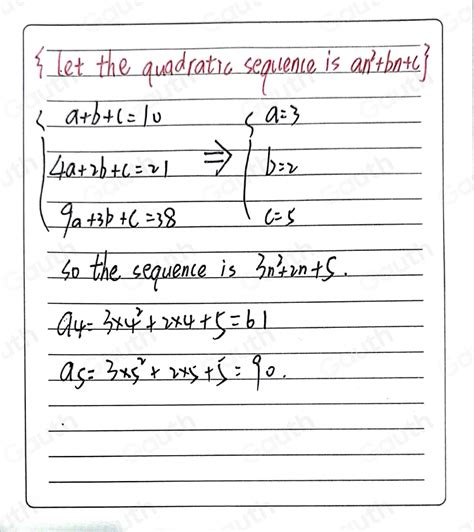 { let the quadratic sequence is an²+bn+c}
{ a+b+c=10 { a=3
4a+2b+c=21 ⇒ b=2
9a+3b+c=38 c=5
so the sequence is 3n²+2n+5.
a4=3×4²+2×4+5=61
a5=3×5²+2×5+5=90.